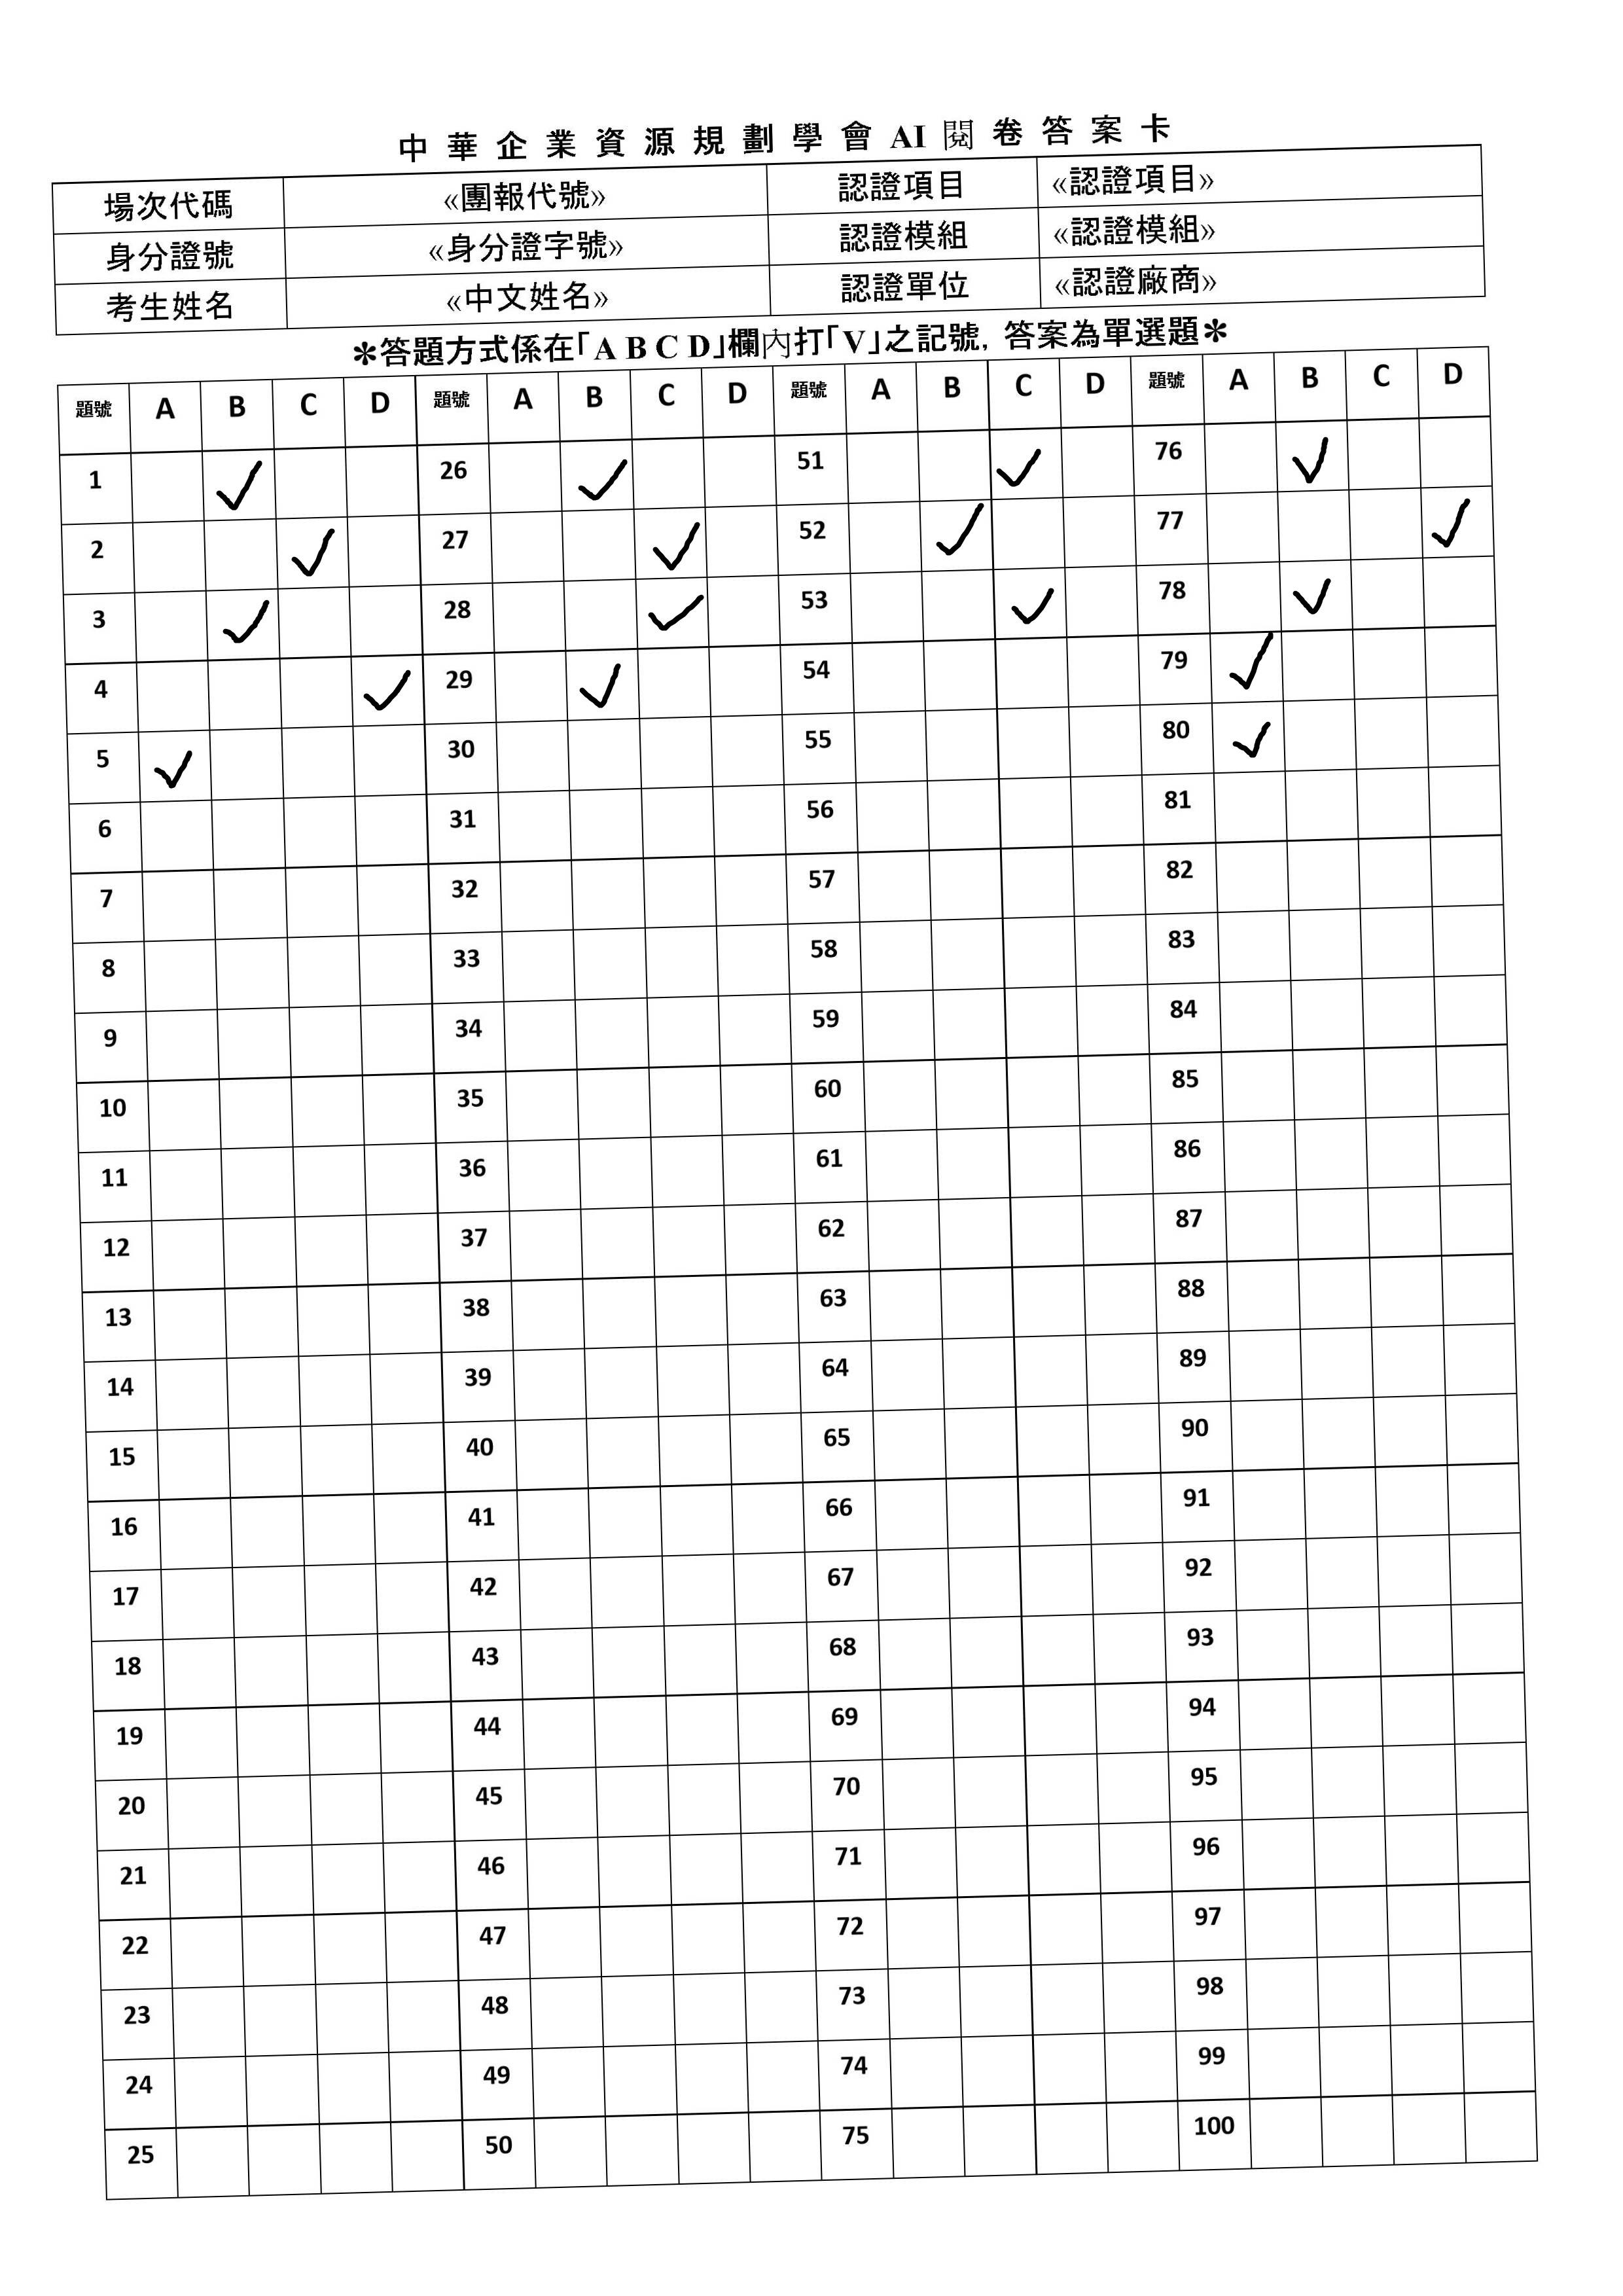 中華企業資源規劃學會AI閱卷答案卡
場次代碼 «團報代號» 認證項目 «認證項目»
身分證號 «身分證字號» 認證模組 «認證模組»
考生姓名 «中文姓名» 認證單位 «認證廠商»
＊答題方式係在「A B C D」欄內打「V」之記號，答案為單選題＊
題號 A B C D 題號 A B C D 題號 A B C D 題號 A B C D
1 ✓ 26 ✓ 51 ✓ 76 ✓
2 ✓ 27 ✓ 52 ✓ 77 ✓
3 ✓ 28 ✓ 53 ✓ 78 ✓
4 ✓ 29 ✓ 54 79 ✓
5 ✓ 30 55 80 ✓
6 31 56 81
7 32 57 82
8 33 58 83
9 34 59 84
10 35 60 85
11 36 61 86
12 37 62 87
13 38 63 88
14 39 64 89
15 40 65 90
16 41 66 91
17 42 67 92
18 43 68 93
19 44 69 94
20 45 70 95
21 46 71 96
22 47 72 97
23 48 73 98
24 49 74 99
25 50 75 100